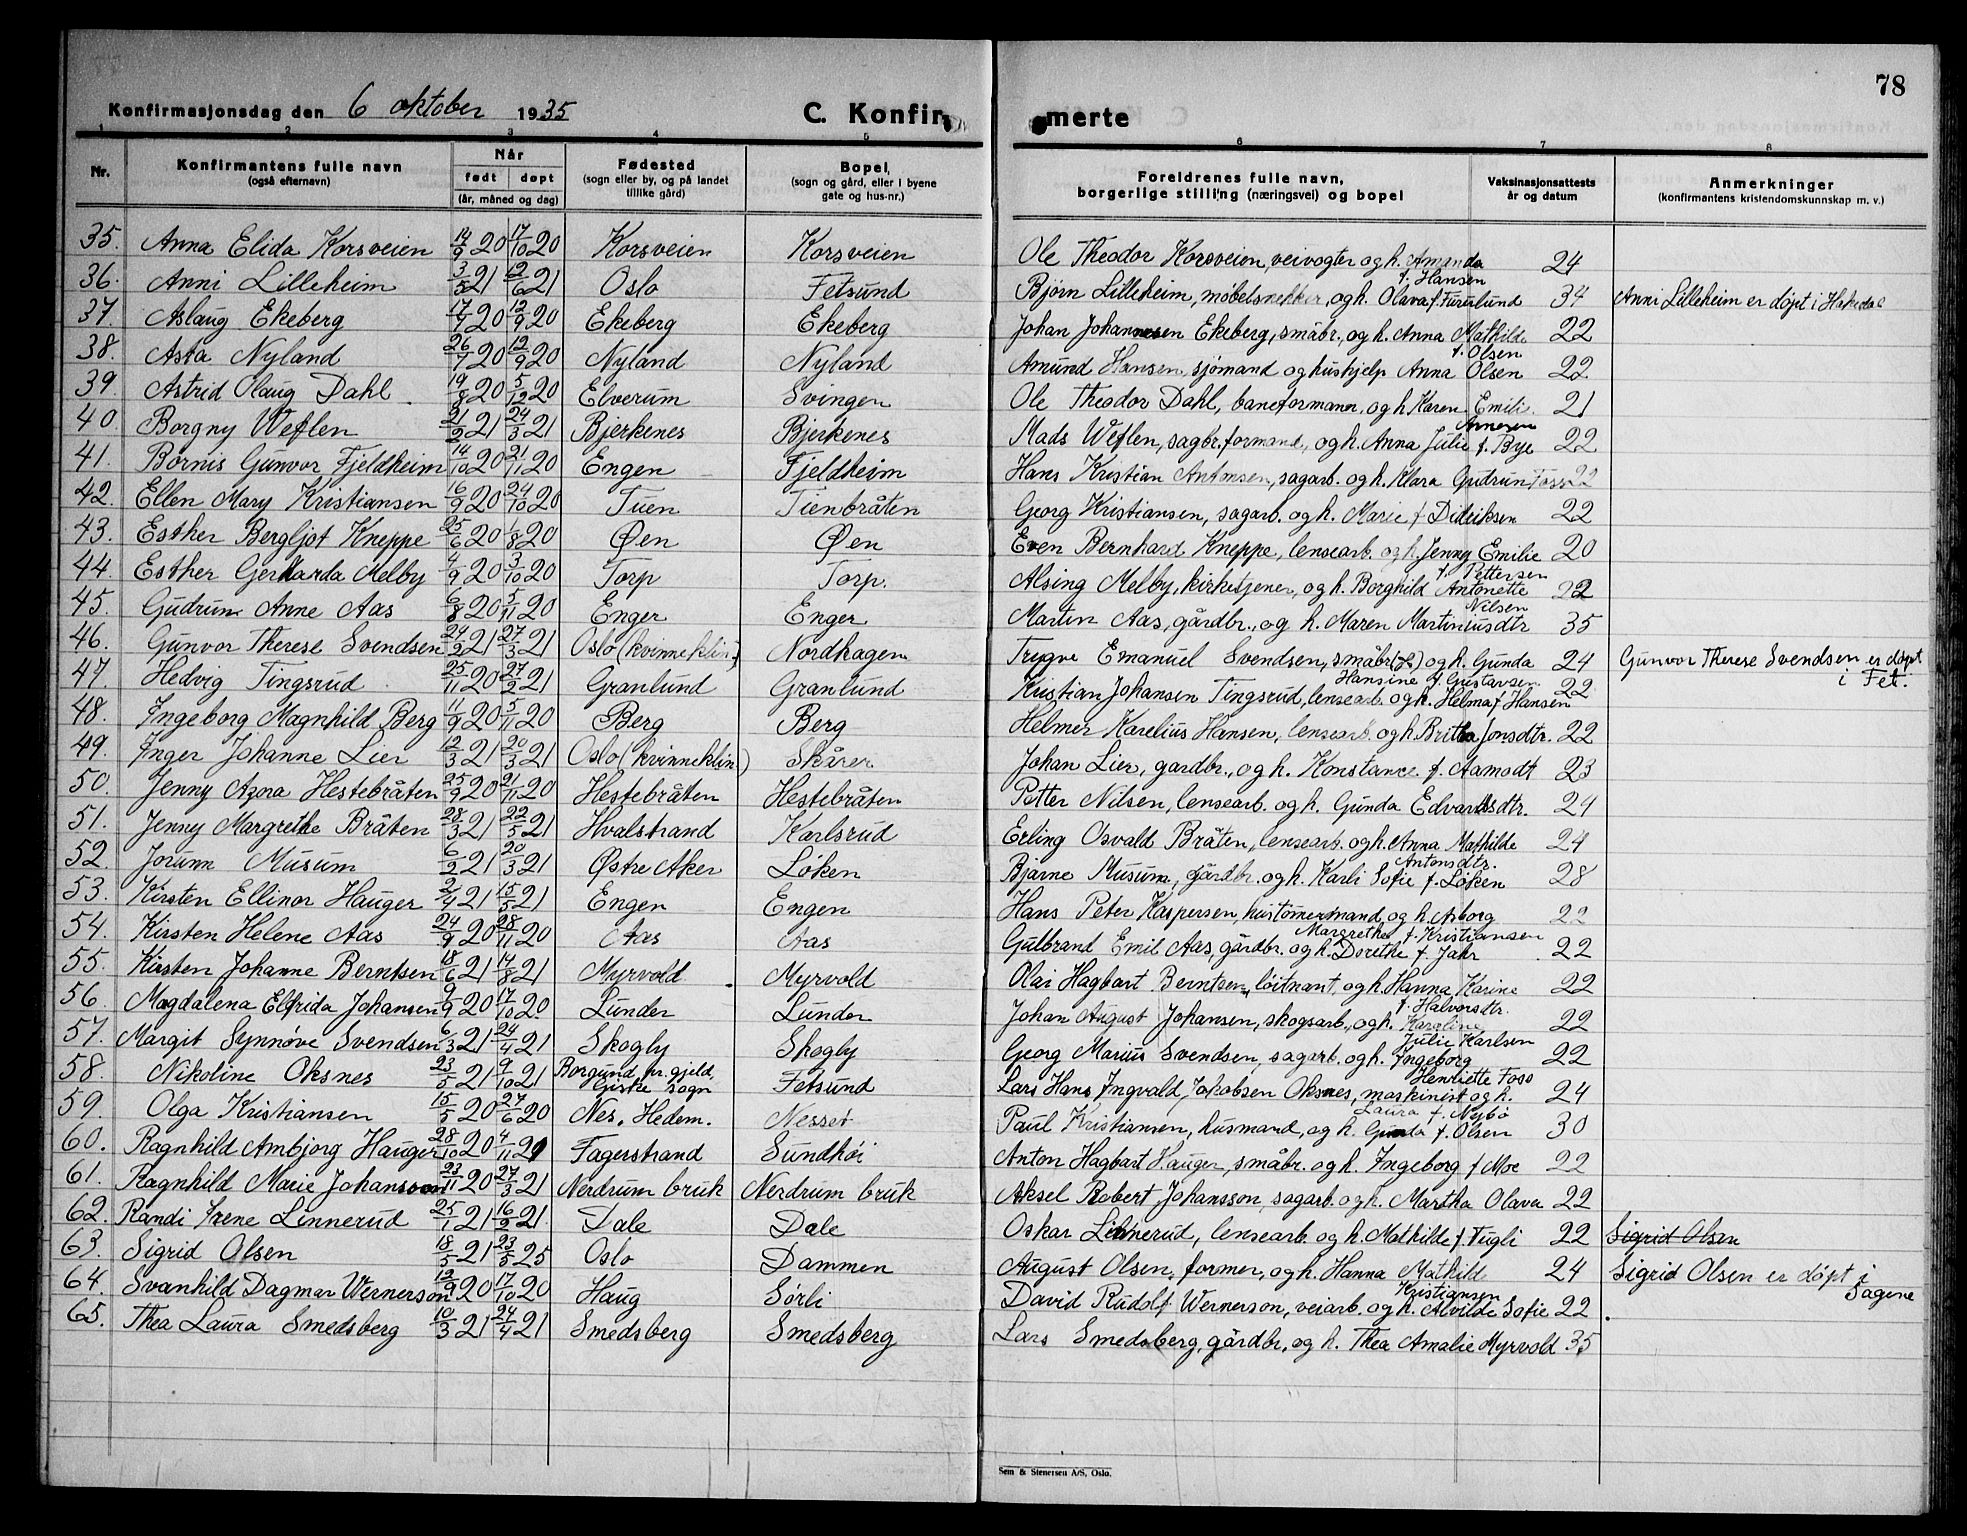 78
Konfirmasjonsdag den 6 oktober 1935 C. Konfir merte
1 2 3 4 5 6 7 8
Nr. Konfirmantens fulle navn (også efternavn) Når født døpt (år, måned og dag) Fødested (sogn eller by, og på landet tillike gård) Bopel, (sogn og gård, eller i byene gate og hus-nr.) Foreldrenes fulle navn, borgerlige stilling (næringsvei) og bopel Vaksinasjonsattests år og datum Anmerkninger (konfirmantens kristendomskunnskap m. v.)
35. Anna Elida Korsveien 14/9 20 17/10 20 Korsveien Korsveien Ole Theodor Korsveien, veivogter og h. Amanda f. Hansen 24
36. Anni Lilleheim 3/5 21 12/6 21 Oslo Fetsund Bjørn Lilleheim, møbelsnekker, og h. Olava f. Furulund 34 Anni Lilleheim er døpt i Hakadal
37. Aslaug Ekeberg 17/7 20 12/9 20 Ekeberg Ekeberg Johan Johannesen Ekeberg, småbr., og h. Anna Mathilde f. Olsen 22
38. Asta Nyland 26/7 20 12/9 20 Nyland Nyland Amund Hansen, sjömand og hushjelp Anna Olsen 22
39. Astrid Olaug Dahl 19/8 20 5/12 20 Elverum Svingen Ole Theodor Dahl, baneformann, og h. Karen Emilie Arnesen 21
40. Borgny Weflen 21/2 21 24/3 21 Bjerkenes Bjerkenes Mads Weflen, sagbr. formand, og h. Anna Julie f. Bye 22
41. Bornis Gunvor Fjeldheim 14/10 20 21/11 20 Engen Fjeldheim Hans Kristian Antonsen, sagarb. og h. Klara Gudrun Foss 22
42. Ellen Mary Kristiansen 16/9 20 24/10 20 Tuen Tienbråten Georg Kristiansen, sagarb. og h. Marie f. Didriksen 22
43. Esther Bergljot Kneppe 25/6 20 1/8 20 Øen Øen Even Bernhard Kneppe, lensearb. og h. Jenny Emilie f. Pettersen 20
44. Esther Gerharda Melby 4/9 20 3/10 20 Torp Torp. Alsing Melby, kirketjener, og h. Borghild Antonette Nilsen 22
45. Gudrun Anne Aas 6/8 20 5/11 20 Enger Enger Martin Aas, gårdbr., og h. Maren Martinusdtr 35
46. Gunvor Therese Svendsen 24/2 21 27/3 21 Oslo (kvinneklin.) Nordhagen Trygve Emanuel Svendsen, småbr. og h. Gunda Hansine f. Gustavsen 24 Gunvor Therese Svendsen er døpt i Fet.
47. Hedvig Tingsrud 25/11 20 27/2 21 Granlund Granlund Kristian Johansen Tingsrud, lensearb. og h. Helma f. Hansen 22
48. Ingeborg Magnhild Berg 11/9 20 5/11 20 Berg Berg Helmer Karelius Hansen, lensearb. og h. Britha Jonsdtr. 22
49. Inger Johanne Lier 12/3 21 20/3 21 Oslo (kvinneklin.) Skårer Johan Lier, gardbr., og h. Konstance f. Aamodt 23
50. Jenny Azora Hestebråten 25/9 20 21/11 20 Hestebråten Hestebråten Petter Nilsen, lensearb. og h. Gunda Edvardsdtr. 24
51. Jenny Margrethe Bråten 28/3 21 22/5 21 Hvalstrand Karlsrud Erling Osvald Bråten, lensearb. og h. Anna Mathilde Antonsdtr. 24
52. Jorunn Musum 6/2 21 20/3 21 Østre Aker Løken Bjarne Musum, gårdbr. og h. Karli Sofie f. Løken 28
53. Kirsten Ellinor Hauger 2/4 21 15/5 21 Engen Engen Hans Peter Kaspersen, hustömermand og h. Asborg Margrethe f. Kristiansen 22
54. Kirsten Helene Aas 24/9 20 28/11 20 Aas Aas Gulbrand Emil Aas, gårdbr. og h. Dorethe f. Jahr 22
55. Kirsten Johanne Berntsen 18/6 21 14/8 21 Myrvold Myrvold Olai Hagbart Berntsen, löitnant, og h. Hanna Karine f. Halvorsdtr. 22
56. Magdalena Elfrida Johansen 9/9 20 17/10 20 Lunder Lunder Johan August Johansen, skogsarb., og h. Karoline Julie Karlsen 22
57. Margit Synnøve Svendsen 6/3 21 24/4 21 Skogly Skogly Georg Marius Svendsen, sagarb. og h. Ingeborg Henriette Foss 22
58. Nikoline Oksnes 23/5 21 9/10 21 Borgund pr. gjeld, Giske sogn Fetsund Lars Hans Ingvald Jakobsen Oksnes, maskinist og h. Laura f. Nybø 24
59. Olga Kristiansen 15/5 20 27/6 20 Nes, Hedem. Nesset Paul Kristiansen, husmand, og h. Gunda f. Olsen 30
60. Ragnhild Ambjørg Hauger 28/10 20 4/11 21 Fagerstrand Sundhöi Anton Hagbart Hauger, småbr. og h. Ingeborg f Moe 22
61. Ragnhild Marie Johansson 23/11 20 27/3 21 Nerdrum bruk Nerdrum bruk Aksel Robert Johansson, sagarb. og h. Martha Olava 22
62. Randi Irene Linnerud 25/1 21 16/2 21 Dale Dale Oskar Linnerud, lensearb. og h. Mathilde f. Fugli 22 Sigrid Olsen
63. Sigrid Olsen 18/5 21 23/5 25 Oslo Dammen August Olsen, former, og h. Hanna Mathild Kristiansen 24 Sigrid Olsen er døpt i Sagene
64. Svanhild Dagmar Wernerson 12/9 20 17/10 20 Haug Sørli David Rudolf Wernerson, veiarb. og h. Alvilde Sofie 22
65. Thea Laura Smedsberg 10/3 21 24/4 21 Smedsberg Smedsberg Lars Smedsberg, gårdbr., og h. Thea Amalie Myrvold 35
Sem & Stenersen A/S, Oslo.